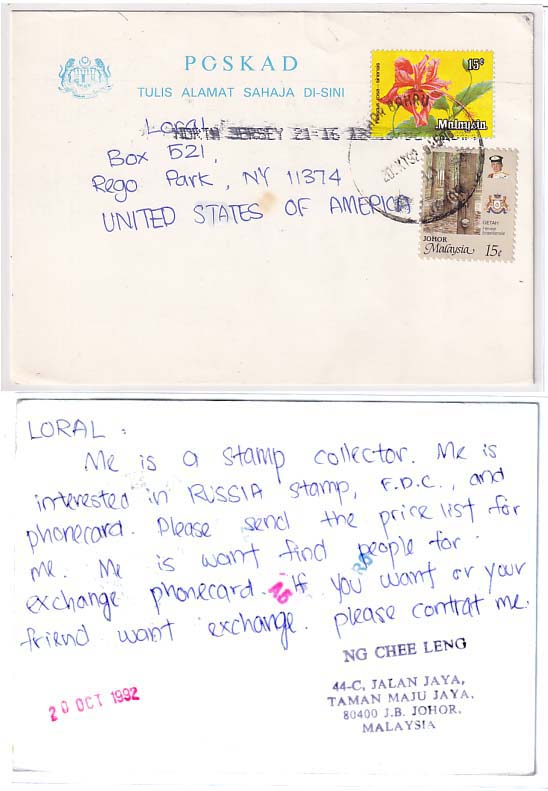 POSKAD
TULIS ALAMAT SAHAJA DI-SINI
15¢
Malaysia
LORAL
NORTH JERSEY 21-16 12
Box 521,
Rego Park, NY 11374
UNITED STATES OF AMERICA
GETAH
JOHOR
Malaysia 15¢
LORAL :
Me is a stamp collector. Me is
interested in RUSSIA stamp, F.D.C., and
phonecard. Please send the price list for
me. Me is want find people for
exchange phonecard. If you want or your
friend want exchange. please contrat me.
A5
NG CHEE LENG
44-C, JALAN JAYA,
TAMAN MAJU JAYA,
80400 J.B. JOHOR.
MALAYSIA
20 OCT 1992